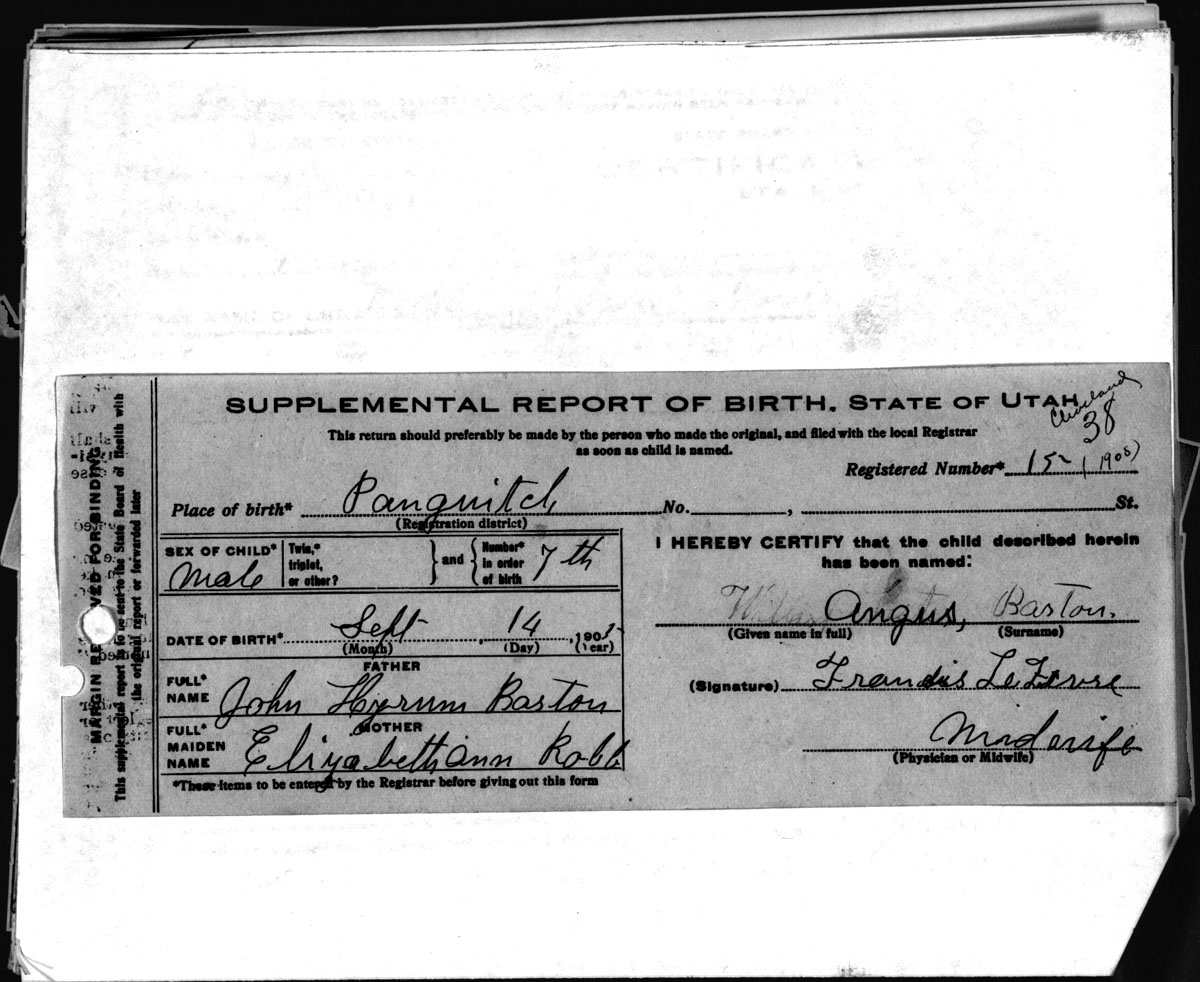 SUPPLEMENTAL REPORT OF BIRTH. STATE OF UTAH
38
This return should preferably be made by the person who made the original, and filed with the local Registrar
as soon as child is named.
Registered Number* 152 (1905)
Place of birth* Panguitch No. , St.
(Registration district)
SEX OF CHILD* Male
Twin,* triplet, or other? } and { Number* in order of birth 7th
DATE OF BIRTH* Sept 14, 190
(Month) (Day) (Year)
FATHER
FULL* NAME John Hyrum Barton
MOTHER
FULL* MAIDEN NAME Elizabeth ann Robb
*These items to be entered by the Registrar before giving out this form
I HEREBY CERTIFY that the child described herein
has been named:
Angus, Barton.
(Given name in full) (Surname)
(Signature) Francis LeFevre
Midwife
(Physician or Midwife)
MARGIN RESERVED FOR BINDING
This supplemental report is to be sent to the State Board of Health with
the original report or forwarded later